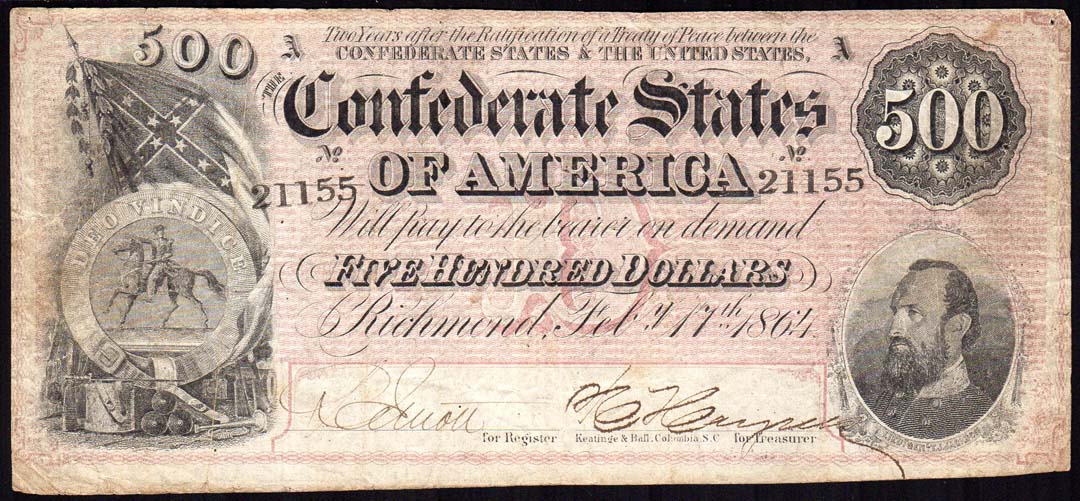 500
A
Two Years after the Ratification of a Treaty of Peace between the
CONFEDERATE STATES & THE UNITED STATES,
A
500
THE
Confederate States
No
OF AMERICA
No
21155
21155
DEO VINDICE
Will pay to the bearer on demand
FIVE HUNDRED DOLLARS
Richmond, Feby. 17th. 1864.
for Register
Keatinge & Ball, Columbia, S.C
for Treasurer